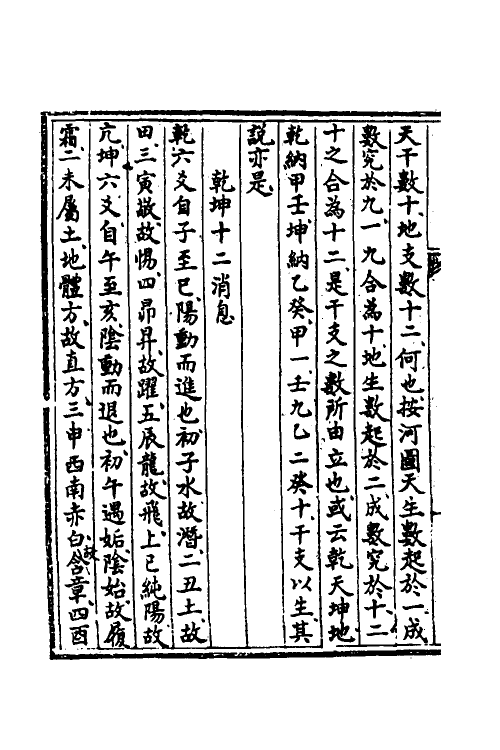 天干數十、地支數十二、何也、按河圖天生數起於一、成
數究於九、一九合為十、地生數起於二、成數究於十、二
十之合為十二、是干支之數所由立也、或云乾天坤地
乾納甲壬、坤納乙癸、甲一壬九乙二癸十、干支以生、其
說亦是、
乾坤十二消息
乾六爻自子至巳、陽動而進也、初子水故潛、二丑土、故
田、三寅敬、故惕、四卯昇、故躍、五辰龍、故飛、上巳純陽、故
亢、坤六爻自午至亥、陰動而退也、初午遇姤、陰始、故履
霜、二未屬土、地體方、故直方、三申西南赤白、故含章、四酉